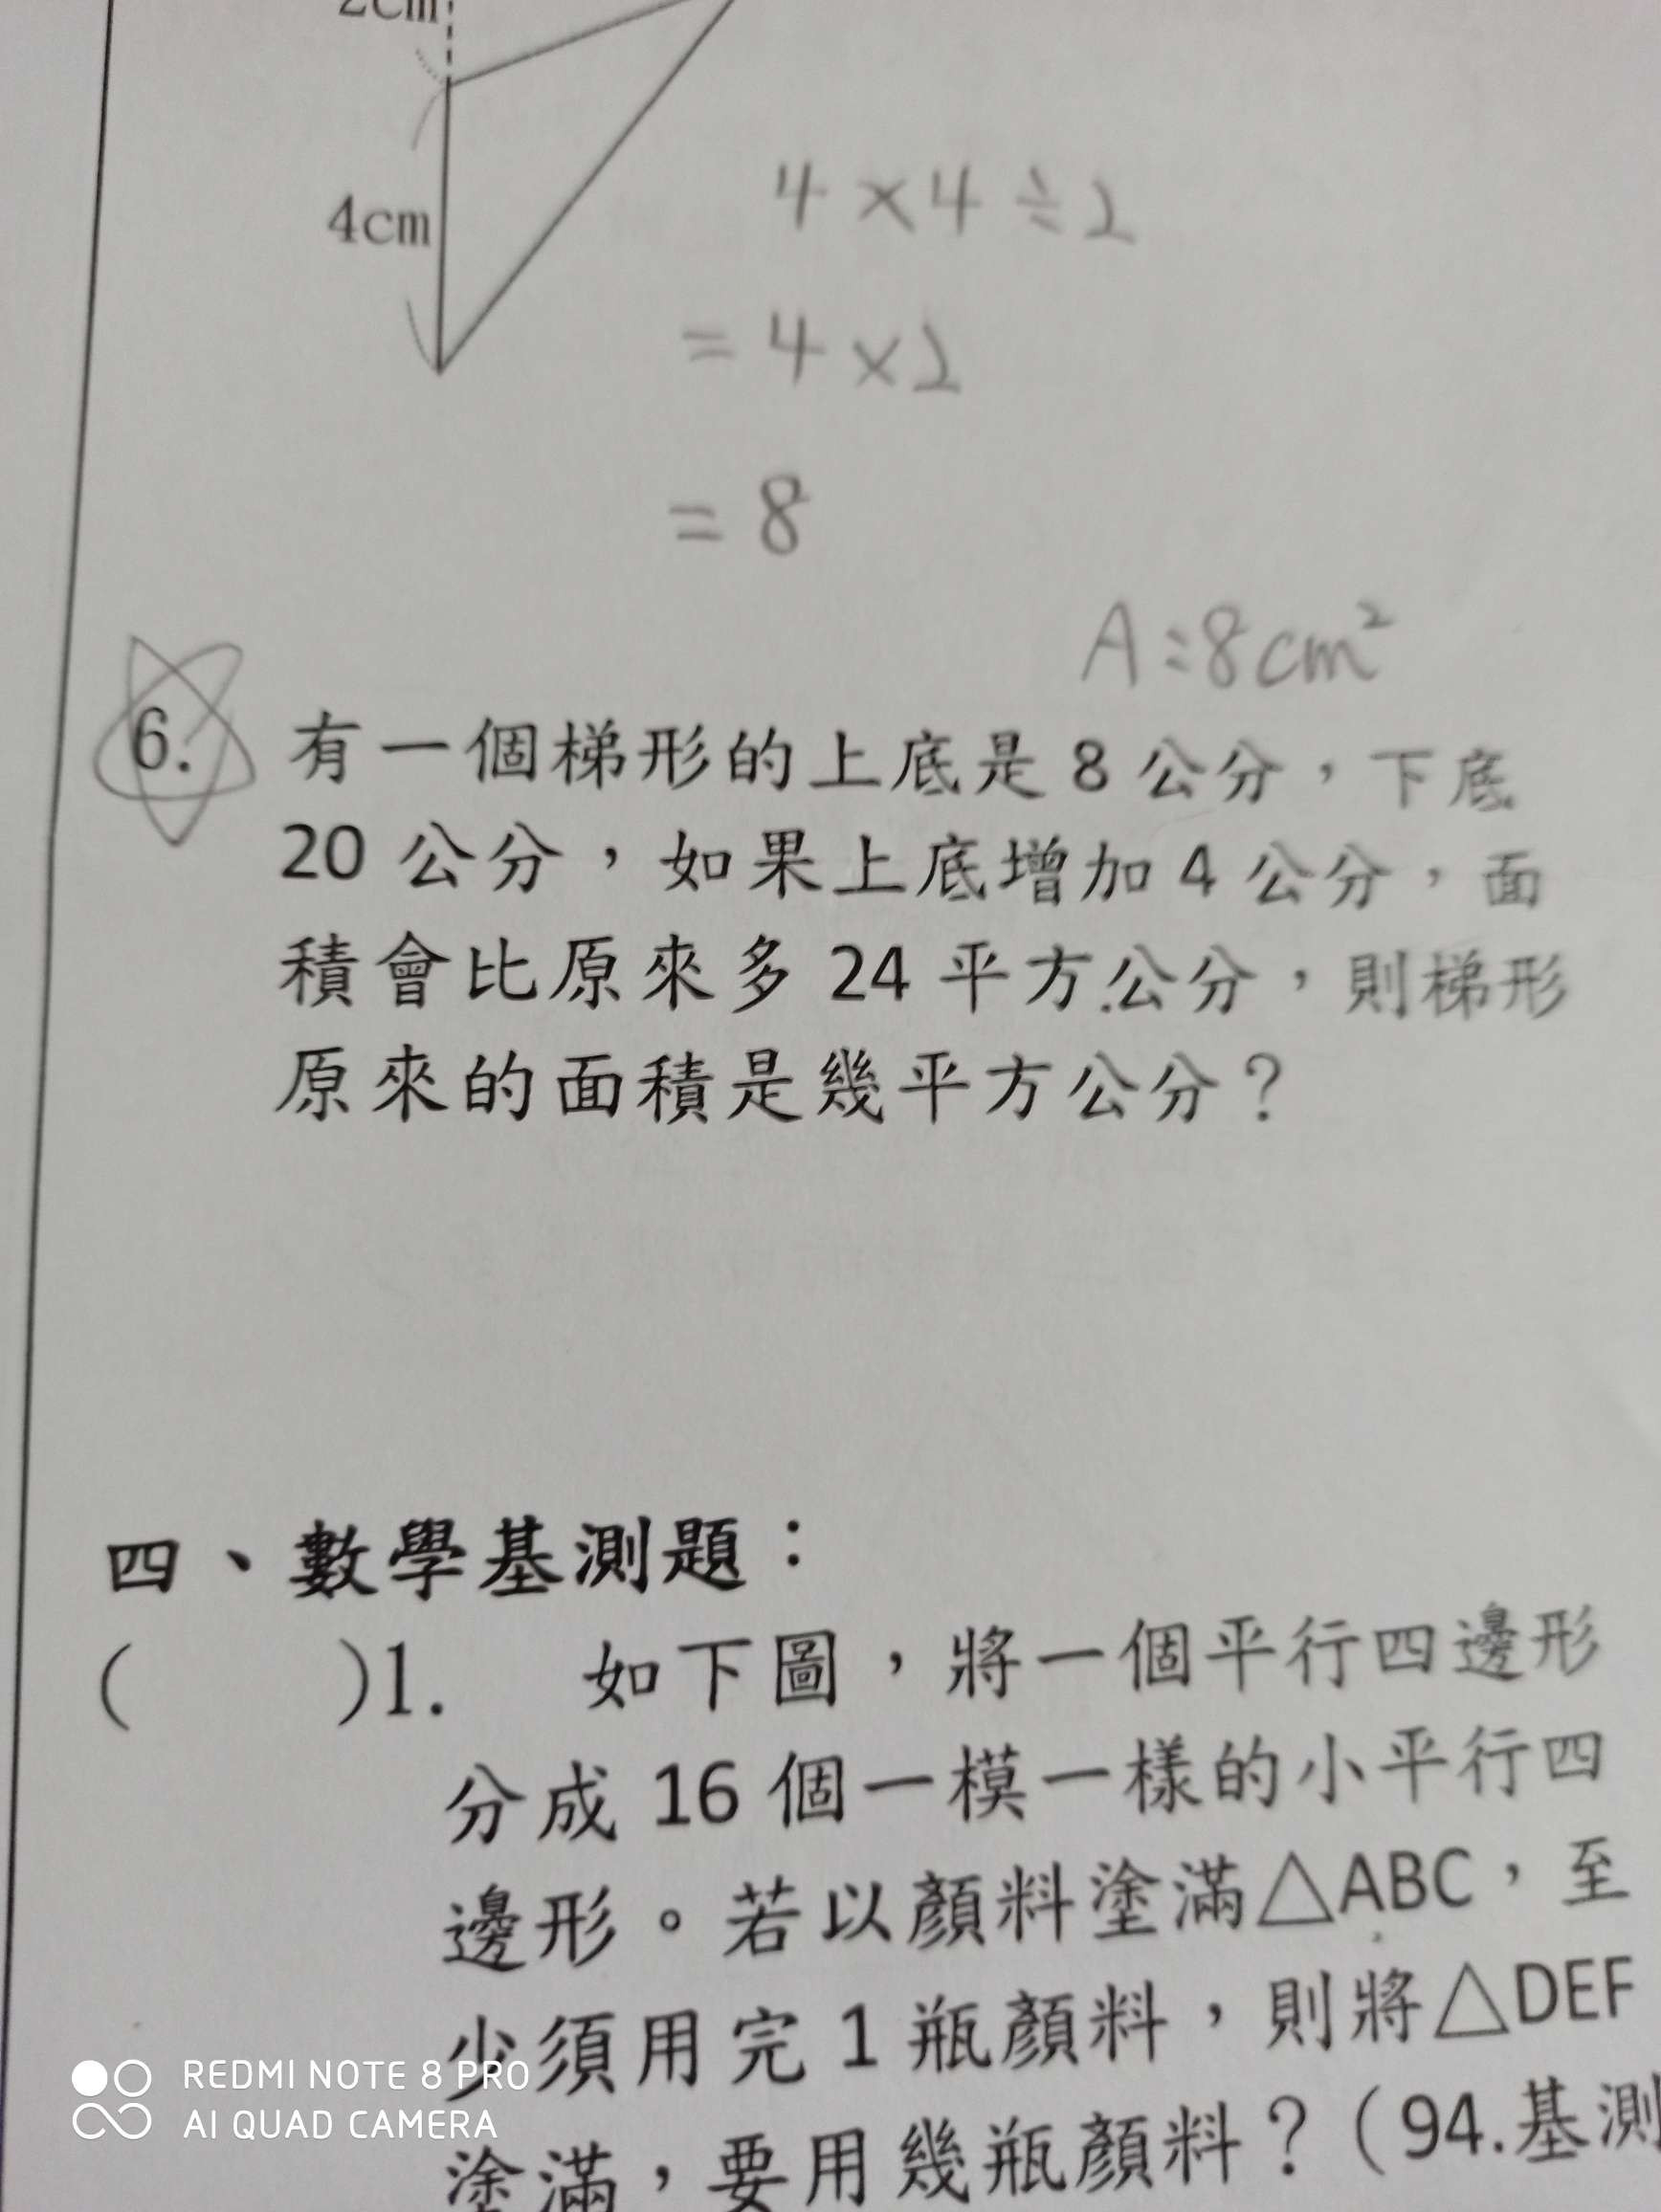 2cm
4cm
4×4÷2
=4×2
=8
A:8cm²
6. 有一個梯形的上底是 8 公分，下底
20 公分，如果上底增加 4 公分，面
積會比原來多 24 平方公分，則梯形
原來的面積是幾平方公分？
四、數學基測題：
(　　)1. 如下圖，將一個平行四邊形
分成 16 個一模一樣的小平行四
邊形。若以顏料塗滿△ABC，至
少須用完 1 瓶顏料，則將△DEF
塗滿，要用幾瓶顏料？(94.基測
REDMI NOTE 8 PRO
AI QUAD CAMERA